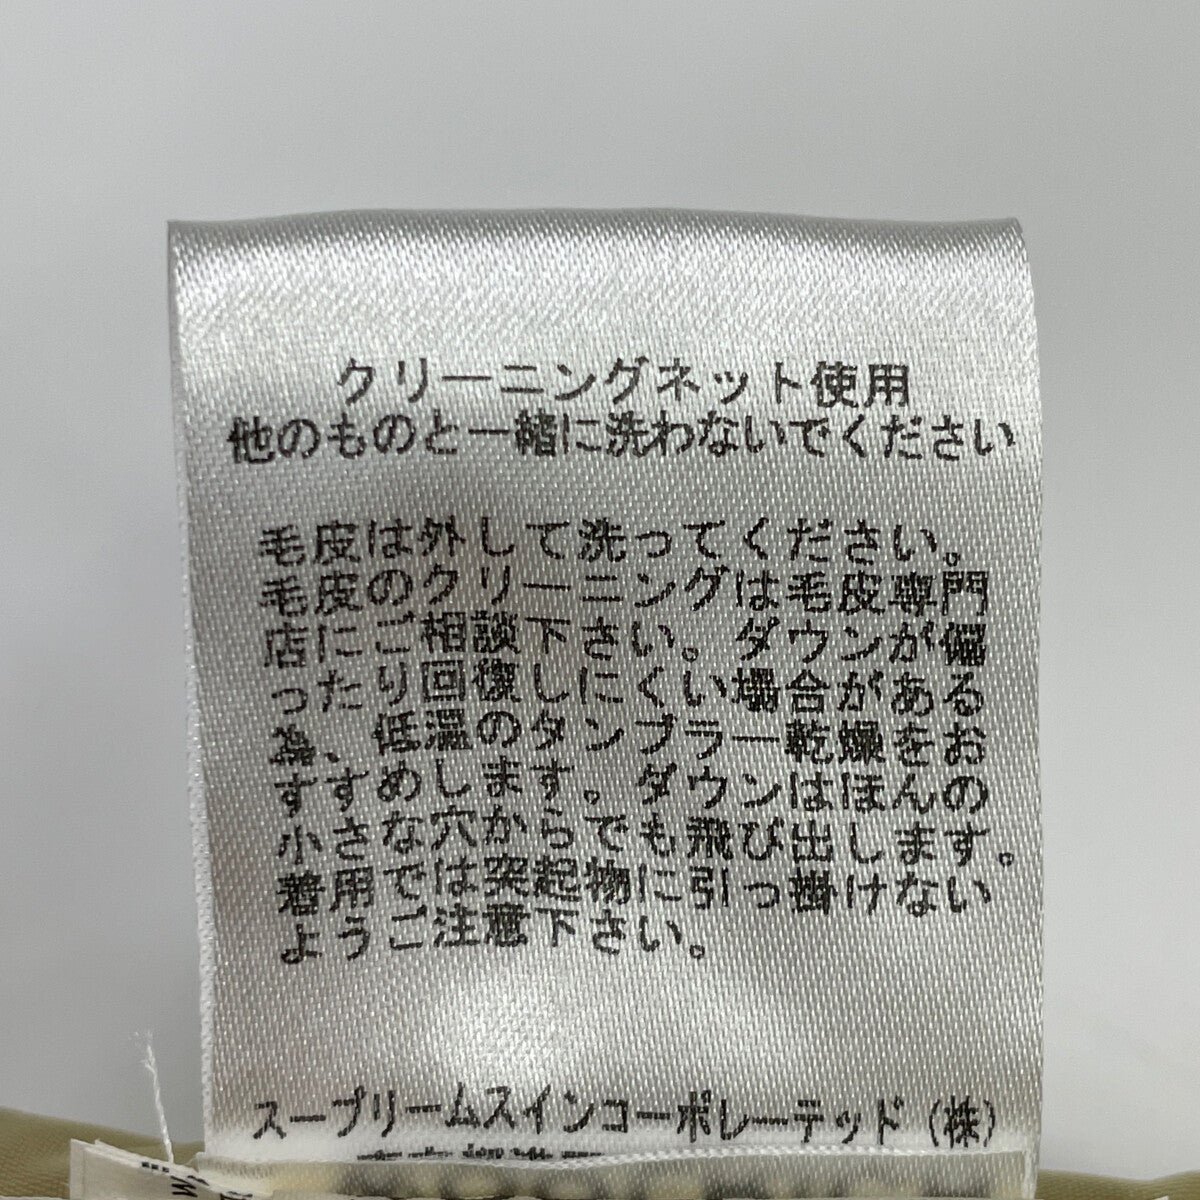 クリーニングネット使用
他のものと一緒に洗わないでください
毛皮は外して洗ってください。
毛皮のクリーニングは毛皮専門
店にご相談下さい。ダウンが偏
ったり回復しにくい場合がある
為、低温のタンブラー乾燥をお
すすめします。ダウンはほんの
小さな穴からでも飛び出します。
着用では突起物に引っ掛けない
ようご注意下さい。
スープリームスインコーポレーテッド(株)